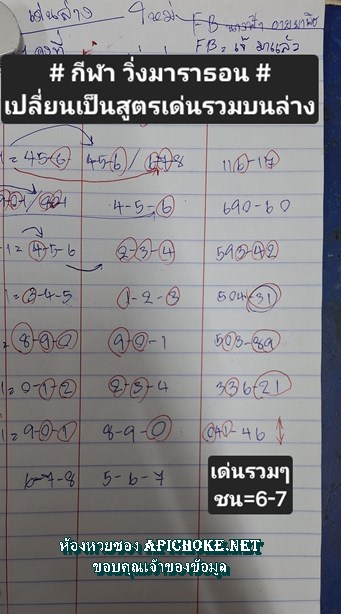 เด่นล่าง 4 หม่
FB
FB = เข้ มาแล้ว
# กีฬา วิ่งมาราธอน #
เปลี่ยนเป็นสูตรเด่นรวมบนล่าง
1=45-6 45-6/67-8 116-17
4-5-6 690-60
-1=4-5-6 2-3-4 593-42
1=3-4-5 1-2-3 504-31
=8-9-0 9-0-1 503-89
1=0-1-2 2-3-4 336-21
1=9-0-1 8-9-0 041-46
6-7-8 5-6-7
เด่นรวมๆ
ชน=6-7
ห้องหวยซอง APICHOKE.NET
ขอบคุณเจ้าของข้อมูล